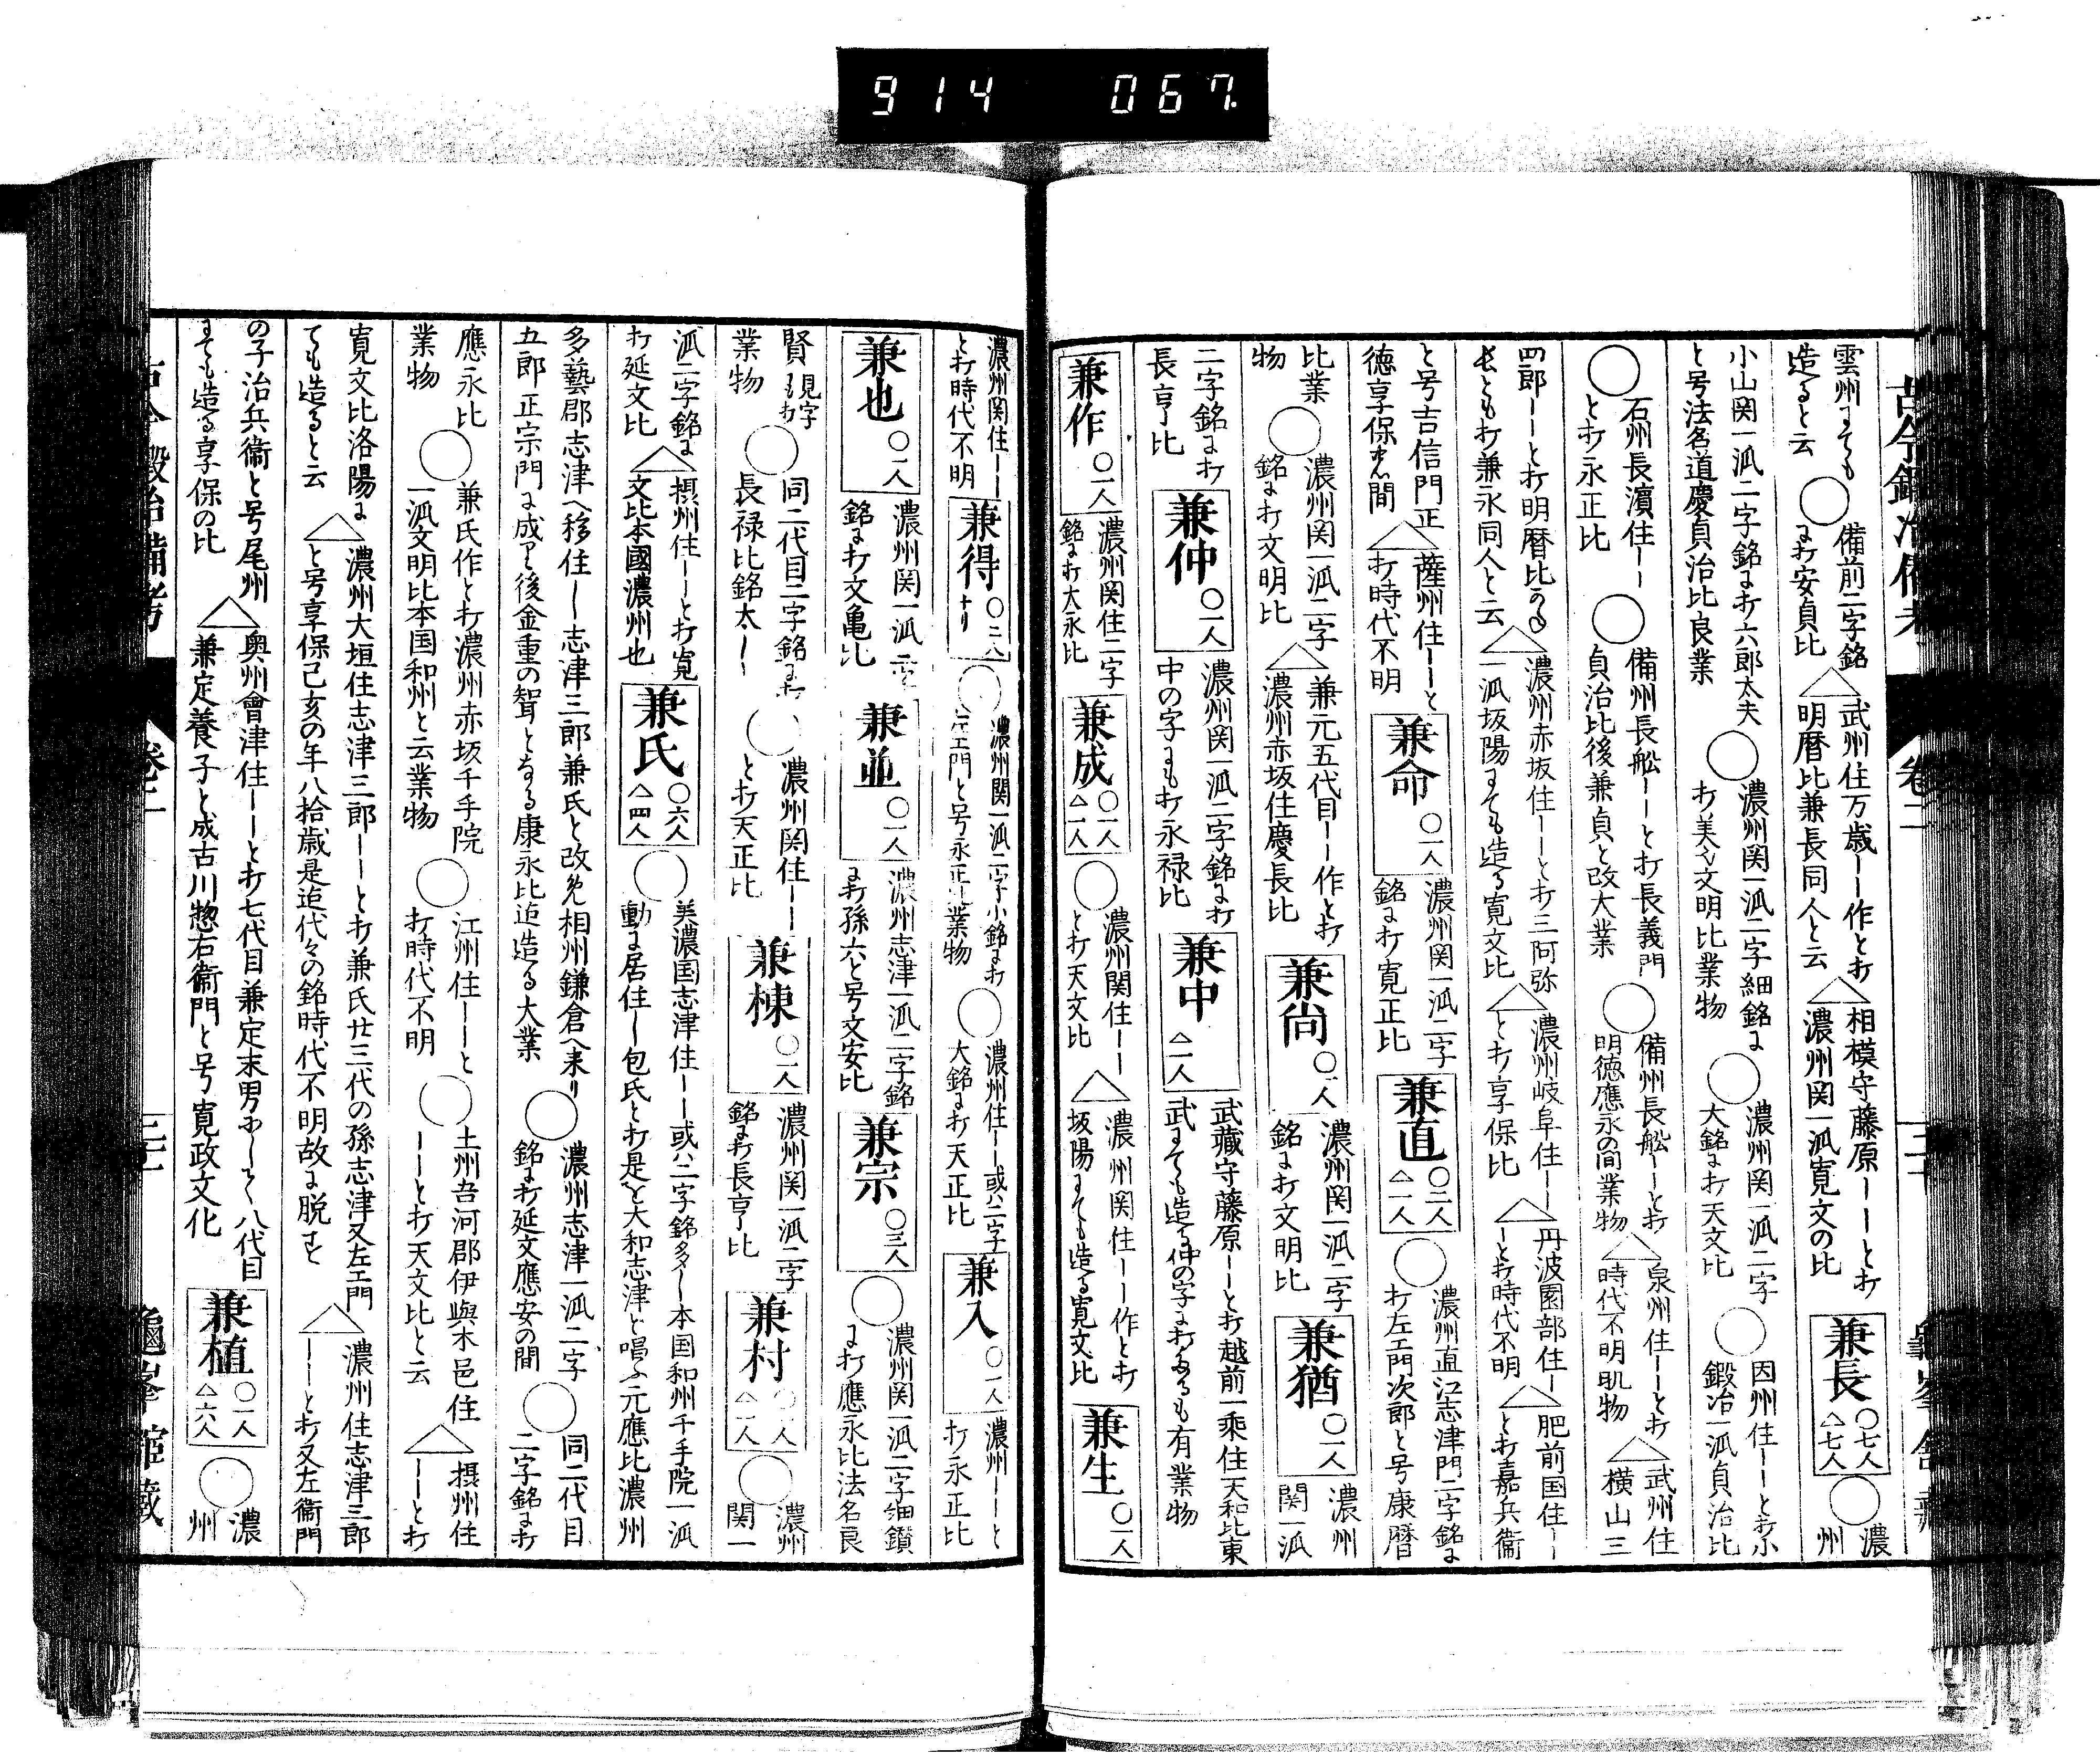 914 067
古今鍛冶備考 巻二
雲州ニても造ると云 ○備前二字銘ニ打安貞比 △武州住万歳ーー作と打明暦比兼長同人と云 △相模守藤原ーーと打濃州関一派寛文の比 兼長 ○七人 △七人 ○濃州
小山関一派二字銘ニ打六郎太夫と号法名道慶貞治比良業 ○濃州関一派二字細銘ニ打美久文明比業物 ○濃州関一派二字大銘ニ打天文比 ○因州住ーーと打小鍛冶一派貞治比
○石州長濱住ーーと打永正比 ○備州長舩ーーと打長義門貞治比後兼貞と改大業 ○備州長舩ーーと打明徳應永の間業物 △泉州住ーーと打時代不明肌物 △武州住横山三
四郎ーーと打明暦比 兼永同人と云 △濃州赤坂住ーーと打三阿弥一派坂陽ニても造る寛文比 △濃州岐阜住ーーと打享保比 △丹波園部住ーーと打時代不明 △肥前国住ーと打嘉兵衞
と号吉信門正徳享保之間 △薩州住ーーと打時代不明 兼命 ○一人 濃州関一派二字銘ニ打寛正比 兼直 ○二人 △一人 ○濃州直江志津門二字銘ニ打左エ門次郎と号康暦
比業物 ○濃州関一派二字銘ニ打文明比 △兼元五代目ーー作と打濃州赤坂住慶長比 兼尚 ○一人 濃州関一派二字銘ニ打文明比 兼猶 ○一人 濃州関一派
二字銘ニ打長亨比 兼仲 ○一人 濃州関一派二字銘ニ打中の字ニも打永禄比 兼中 △一人 武藏守藤原ーーと打越前一乘住天和比東武ニても造る仲の字ニ打るも有業物
兼作 ○一人 濃州関住二字銘ニ打大永比 兼成 ○一人 △一人 ○濃州関住ーーと打天文比 △濃州関住ーー作と打坂陽ニても造る寛文比 兼生 ○一人
濃州関住ーーと打時代不明 兼得 ○二人 ○濃州関一派二字小銘ニ打左エ門と号永正比業物 ○濃州住ーー或ハ二字大銘ニ打天正比 兼入 ○一人 濃州ーーと打永正比
兼也 ○一人 濃州関一派二字銘ニ打文亀比 兼並 ○一人 濃州志津一派二字銘ニ打孫六と号文安比 兼宗 ○三人 ○濃州関一派二字細鑚ニ打應永比法名良
賢見字も打業物 ○同二代目二字銘ニ打長禄比銘太ーー ○濃州関住ーーと打天正比 兼棟 ○一人 濃州関一派二字銘ニ打長亨比 兼村 ○一人 △一人 ○濃州関一
派二字銘ニ打延文比 △摂州住ーーと打寛文比本國濃州也 兼氏 ○六人 △四人 ○美濃国志津住ーー或ハ二字銘多ー本国和州千手院一派動ニ居住ー包氏と打是を大和志津と唱ふ元應比濃州
多藝郡志津へ移住ー志津三郎兼氏と改免相州鎌倉へ来り五郎正宗門ニ成り後金重の聟となる康永比迄造る大業 ○濃州志津一派二字銘ニ打延文應安の間 ○同二代目二字銘ニ打
應永比業物 ○兼氏作と打濃州赤坂千手院一派文明比本国和州と云業物 ○江州住ーーと打時代不明 ○土州吾河郡伊與木邑住ーーと打天文比と云 △摂州住ーーと打
寛文比洛陽ニても造ると云 △濃州大垣住志津三郎ーーと打兼氏廿三代の孫志津又左エ門と号享保己亥の年八拾歳是迄代々の銘時代不明故ニ脱す △濃州住志津三郎ーーと打又左衞門
の子治兵衞と号尾州ニても造る享保の比 △奥州會津住ーーと打七代目兼定末男 八代目兼定養子と成古川惣右衞門と号寛政文化 兼植 ○一人 △六人 ○濃州
古今鍛冶備考 巻二 龜峯舘藏